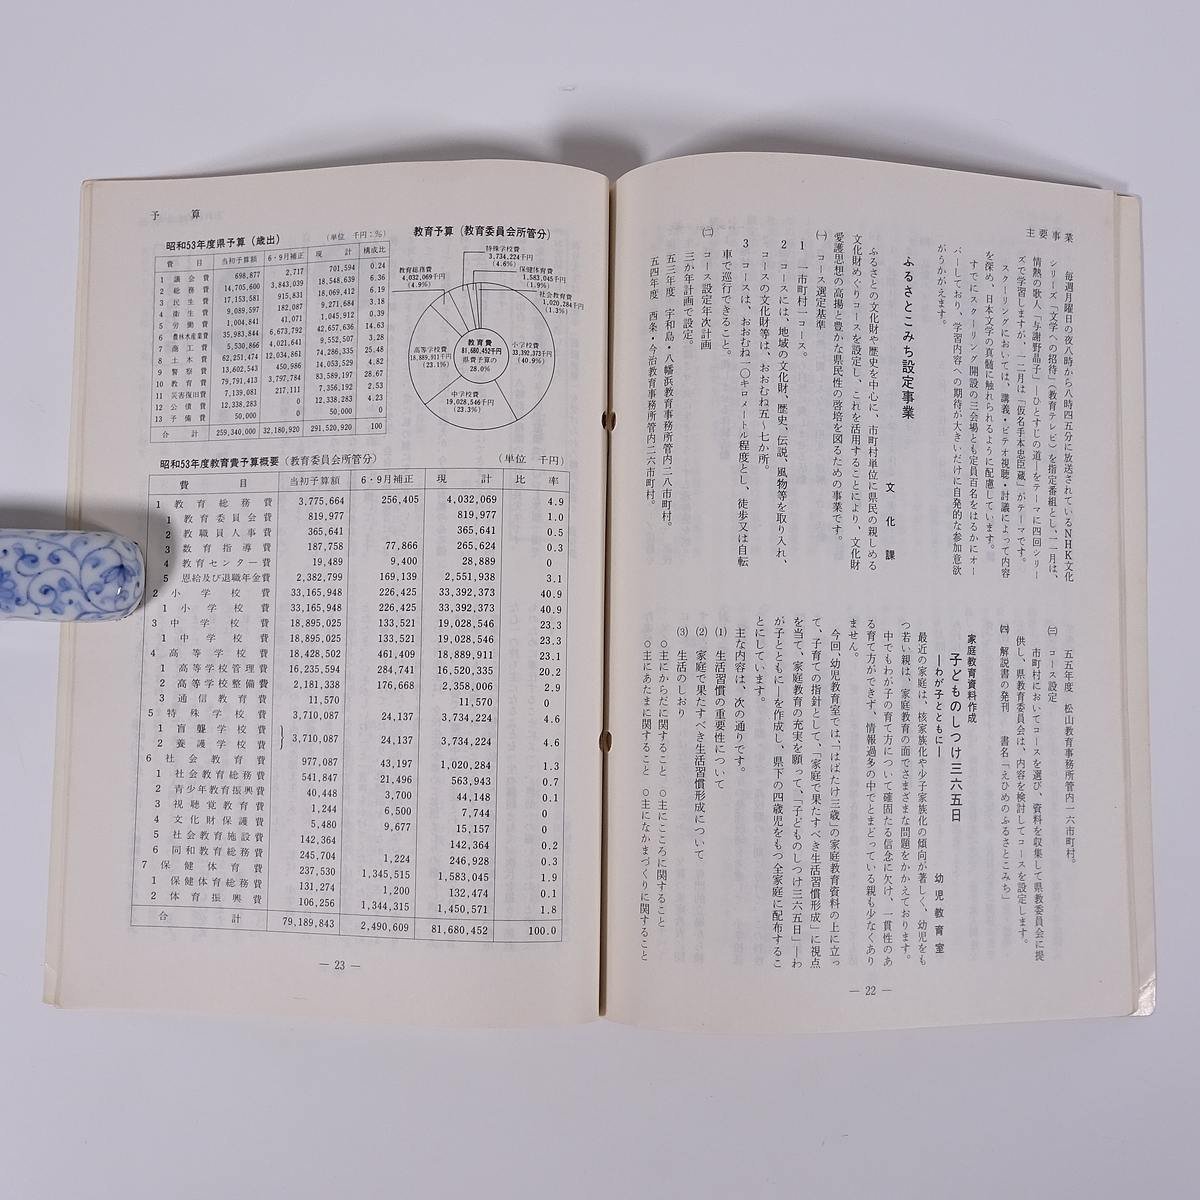 主要事業
毎週月曜日の夜八時から八時四五分に放送されているNHK文化
シリーズ「文学への招待」(教育テレビ)を指定番組とし、一一月は、
情熱の歌人「与謝野晶子」―ひとすじの道―をテーマに四回シリー
ズで学習しますが、一二月は「仮名手本忠臣蔵」がテーマです。
スクーリングにおいては、講義・ビデオ視聴・討議によって内容
を深め、日本文学の真髄に触れられるように配慮しています。
すでにスクーリング開設の三会場とも定員百名をはるかにオー
バーしており、学習内容への期待が大きいだけに自発的な参加意欲
がうかがえます。
ふるさとこみち設定事業
文化課
ふるさとの文化財や歴史を中心に、市町村単位に県民の親しめる
文化財めぐりコースを設定し、これを活用することにより、文化財
愛護思想の高揚と豊かな県民性の啓培を図るための事業です。
㈠ コース選定基準
1 一市町村一コース。
2 コースには、地域の文化財、歴史、伝説、風物等を取り入れ、
コースの文化財等は、おおむね五〜七か所。
3 コースは、おおむね一〇キロメートル程度とし、徒歩又は自転
車で巡行できること。
㈡ コース設定年次計画
三か年計画で設定。
五三年度 宇和島・八幡浜教育事務所管内二八市町村。
五四年度 西条・今治教育事務所管内二六市町村。
五五年度 松山教育事務所管内一六市町村。
㈢ コース設定
市町村においてコースを選び、資料を収集して県教委員会に提
供し、県教育委員会は、内容を検討してコースを設定します。
㈣ 解説書の発刊 書名「えひめのふるさとこみち」
家庭教育資料作成
子どものしつけ三六五日
―わが子とともに―
幼児教育室
最近の家庭は、核家族化や少子家族化の傾向が著しく、幼児をも
つ若い親は、家庭教育の面でさまざまな問題をかかえております。
中でもわが子の育て方について確固たる信念に欠け、一貫性のあ
る育て方ができず、情報過多の中でとまどっている親も少なくあり
ません。
今回、幼児教育室では、「はばたけ三歳」の家庭教育資料の上に立っ
て、子育ての指針として、「家庭で果たすべき生活習慣形成」に視点
を当て、家庭教育の充実を願って、「子どものしつけ三六五日」―わ
が子とともに―を作成し、県下の四歳児をもつ全家庭に配布するこ
とにしています。
主な内容は、次の通りです。
(1) 生活習慣の重要性について
(2) 家庭で果たすべき生活習慣形成について
(3) 生活のしおり
○主にからだに関すること ○主にこころに関すること
○主にあたまに関すること ○主になかまづくりに関すること
— 22 —
予算
昭和53年度県予算(歳出) (単位 千円:%)
費目 当初予算額 6・9月補正 現計 構成比
1 議会費 698,877 2,717 701,594 0.24
2 総務費 14,705,600 3,843,039 18,548,639 6.36
3 民生費 17,153,581 915,831 18,069,412 6.19
4 衛生費 9,089,597 182,087 9,271,684 3.18
5 労働費 1,004,841 41,071 1,045,912 0.39
6 農林水産業費 35,983,844 6,673,792 42,657,636 14.63
7 商工費 5,530,866 4,021,641 9,552,507 3.28
8 土木費 62,251,474 12,034,861 74,286,335 25.48
9 警察費 13,602,543 450,986 14,053,529 4.82
10 教育費 79,791,413 3,797,784 83,589,197 28.67
11 災害復旧費 7,139,081 217,111 7,356,192 2.53
12 公債費 12,338,283 0 12,338,283 4.23
13 予備費 50,000 0 50,000 0
合計 259,340,000 32,180,920 291,520,920 100
教育予算(教育委員会所管分)
特殊学校費
3,734,224千円
(4.6%)
保健体育費
1,583,045千円
(1.9%)
社会教育費
1,020,284千円
(1.3%)
教育総務費
4,032,069千円
(4.9%)
小学校費
33,392,373千円
(40.9%)
教育費
81,680,452千円
県費予算の
28.0%
高等学校費
18,889,911千円
(23.1%)
中学校費
19,028,546千円
(23.3%)
昭和53年度教育費予算概要(教育委員会所管分) (単位 千円)
費目 当初予算額 6・9月補正 現計 比率
1 教育総務費 3,775,664 256,405 4,032,069 4.9
1 教育委員会費 819,977 819,977 1.0
2 教職員人事費 365,641 365,641 0.5
3 教育指導費 187,758 77,866 265,624 0.3
4 教育センター費 19,489 9,400 28,889 0
5 恩給及び退職年金費 2,382,799 169,139 2,551,938 3.1
2 小学校費 33,165,948 226,425 33,392,373 40.9
1 小学校費 33,165,948 226,425 33,392,373 40.9
3 中学校費 18,895,025 133,521 19,028,546 23.3
1 中学校費 18,895,025 133,521 19,028,546 23.3
4 高等学校費 18,428,502 461,409 18,889,911 23.1
1 高等学校管理費 16,235,594 284,741 16,520,335 20.2
2 高等学校整備費 2,181,338 176,668 2,358,006 2.9
3 通信教育費 11,570 11,570 0
5 特殊学校費 3,710,087 24,137 3,734,224 4.6
1 盲聾学校費
2 養護学校費 3,710,087 24,137 3,734,224 4.6
6 社会教育費 977,087 43,197 1,020,284 1.3
1 社会教育総務費 541,847 21,496 563,943 0.7
2 青少年教育振興費 40,448 3,700 44,148 0.1
3 視聴覚教育費 1,244 6,500 7,744 0
4 文化財保護費 5,480 9,677 15,157 0
5 社会教育施設費 142,364 142,364 0.2
6 同和教育総務費 245,704 1,224 246,928 0.3
7 保健体育費 237,530 1,345,515 1,583,045 1.9
1 保健体育総務費 131,274 1,200 132,474 0.1
2 体育振興費 106,256 1,344,315 1,450,571 1.8
合計 79,189,843 2,490,609 81,680,452 100.0
— 23 —